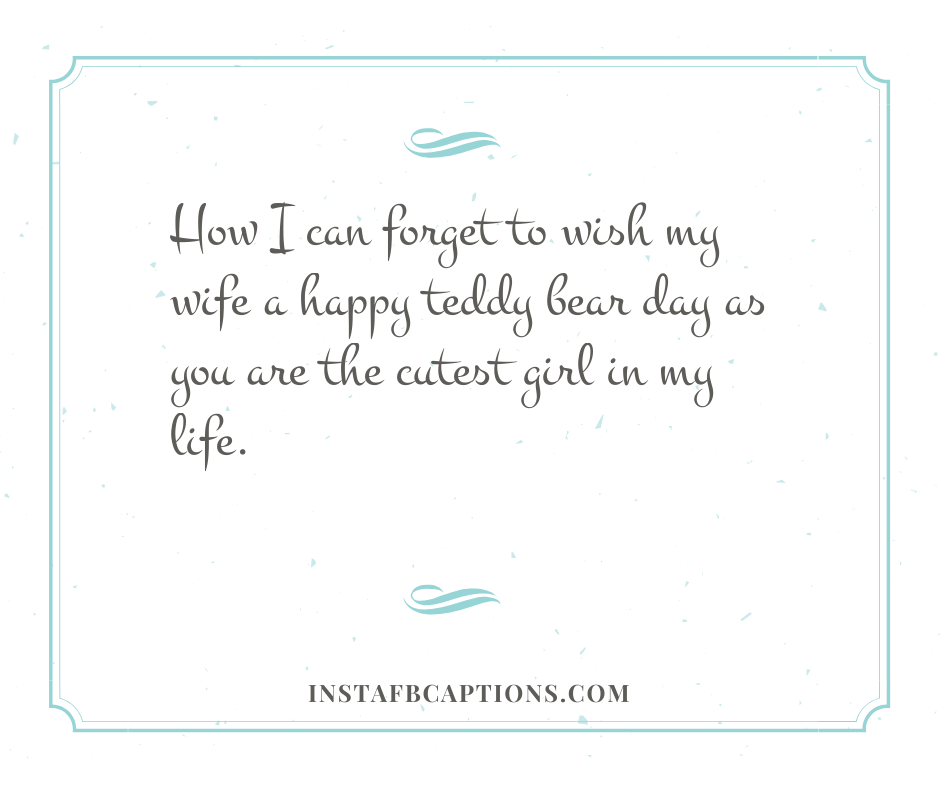 How I can forget to wish my
wife a happy teddy bear day as
you are the cutest girl in my
life.
INSTAFBCAPTIONS.COM